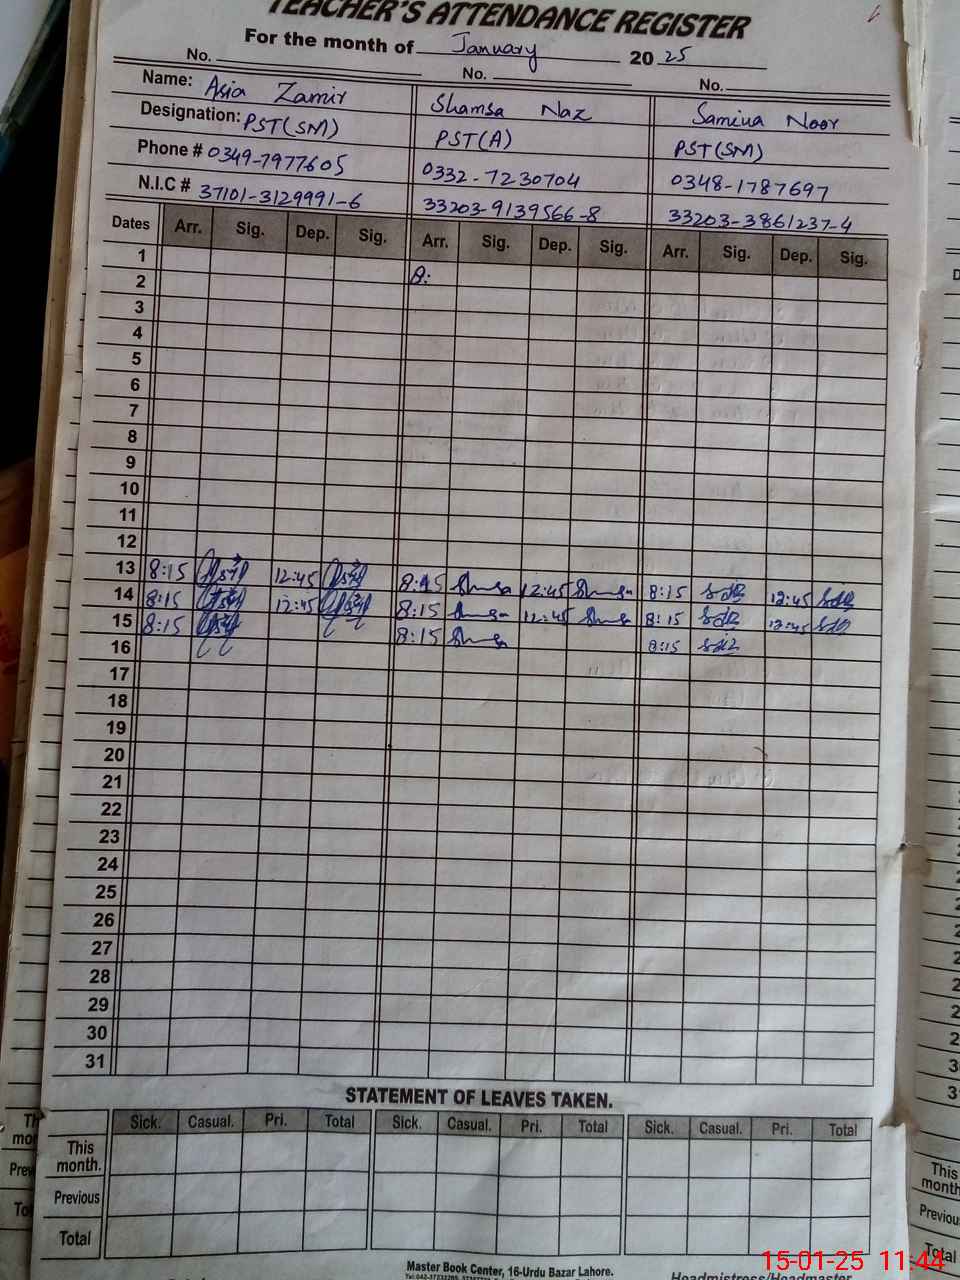 TEACHER'S ATTENDANCE REGISTER
For the month of January 2025
No. No. No.
Name: Asia Zamir Shamsa Naz Samina Noor
Designation: PST(SM) PST(A) PST(SM)
Phone # 0349-7977605 0332-7230704 0348-1787697
N.I.C # 37101-3129991-6 33203-9139566-8 33203-3861237-4
Dates Arr. Sig. Dep. Sig. Arr. Sig. Dep. Sig. Arr. Sig. Dep. Sig.
1
2 8:
3
4
5
6
7
8
9
10
11
12
13 8:15 12:45 8:15 12:45 8:15 12:45
14 8:15 12:45 8:15 12:45 8:15 12:45
15 8:15 8:15 8:15
16
17
18
19
20
21
22
23
24
25
26
27
28
29
30
31
STATEMENT OF LEAVES TAKEN.
Sick. Casual. Pri. Total Sick. Casual. Pri. Total Sick. Casual. Pri. Total
This month.
Previous
Total
Master Book Center, 16-Urdu Bazar Lahore.
Headmistress/Headmaster
15-01-25 11:44